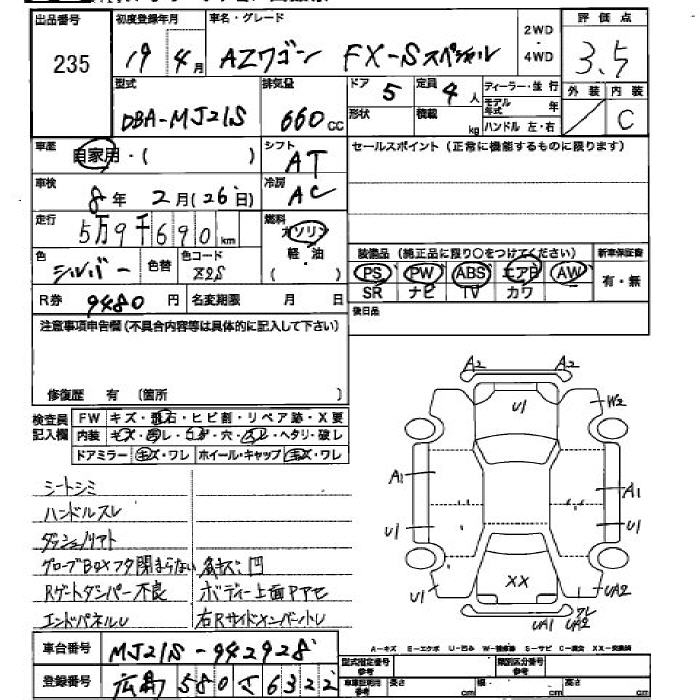 出品番号 初度登録年月 車名・グレード 2WD ・ 4WD 評価点
235 19年4月 AZワゴン FX-Sスペシャル 3.5
型式 排気量 ドア 5 定員 4人 ディーラー・並行 外装 内装
DBA-MJ21S 660cc 形状 積載 kg モデル年式 年 ハンドル 左・右 C
車歴 自家用・( ) シフト AT セールスポイント(正常に機能するものに限ります)
車検 8年 2月(26日) 冷房 AC
走行 5万9千690km 燃料 ガソリン
色 シルバー 色替 色コード 22S 軽・油 ( ) 装備品(純正品に限り○をつけてください) 新車保証書
PS PW ABS エアB AW 有・無
SR ナビ TV カワ
R券 9480円 名変期限 月 日 後日品
注意事項申告欄(不具合内容等は具体的に記入して下さい)
修復歴 有 (箇所 )
検査員記入欄 FW キズ・飛石・ヒビ割・リペア跡・X要
内装 キズ・汚レ・穴・ヘタリ・破レ
ドアミラー キズ・ワレ ホイール・キャップ キズ・ワレ
シートシミ
ハンドルスレ
グローブBOXフタ閉まらない
Rゲートダンパー不良 ボディー上面
エンドパネルU 右Rサイドメンバー
A2 A2
U1 W2
A1 A1
U1 U1
XX
U1 UA2
UA1 UA2 ワレ
A-キズ E-エクボ U-凹み W-補修跡 S-サビ C-腐食 XX-交換済
車台番号 MJ21S-942928 型式指定番号 参考 類別区分番号 参考
登録番号 広島 580 さ 6322 車庫証明用 参考 長さ cm 幅 cm 高さ cm